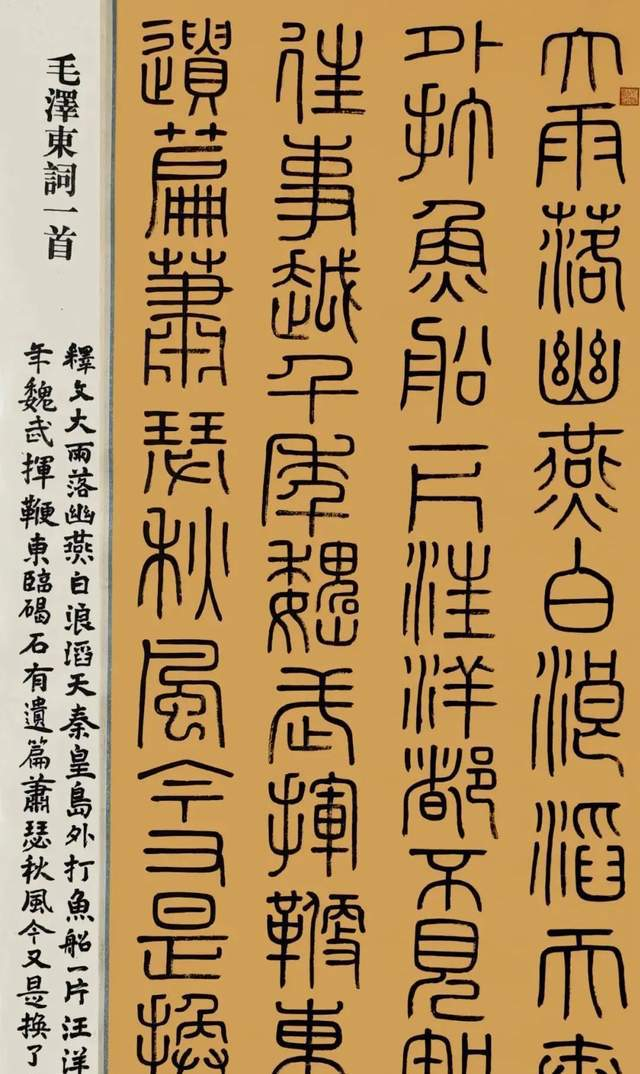 大雨落幽燕白浪滔天秦
外打魚船一片汪洋都不見知
往事越千年魏武揮鞭東
遺篇蕭瑟秋風今又是換
毛澤東詞一首
釋文大雨落幽燕白浪滔天秦皇島外打魚船一片汪洋
年魏武揮鞭東臨碣石有遺篇蕭瑟秋風今又是換了